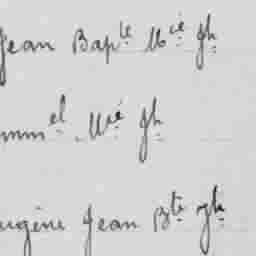 Jean Bapte Mcié Jh
mmel, Mié Jh
ugène Jean Bte Jh